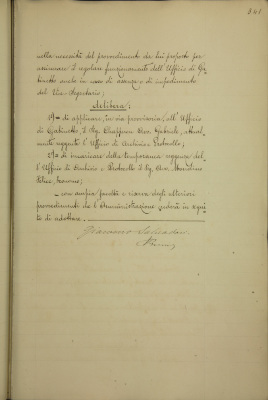 341
nella necessità del provvedimento da lui proposto per
assicurare il regolare funzionamento dell'Ufficio di Ga-
binetto anche in caso di assenza o di impedimento
del Vice-Segretario;
delibera:
1° = di applicare, in via provvisoria, all'Ufficio
di Gabinetto, il Sig. Cav. Gabriele,
reggente l'Ufficio di Archivio e Protocollo;
2° = di incaricare della temporanea reggenza del-
l'Ufficio di Archivio e Protocollo il Sig.
Felice
= con ampia facoltà e riserva degli ulteriori
provvedimenti che l'Amministrazione crederà in segui-
to di adottare.